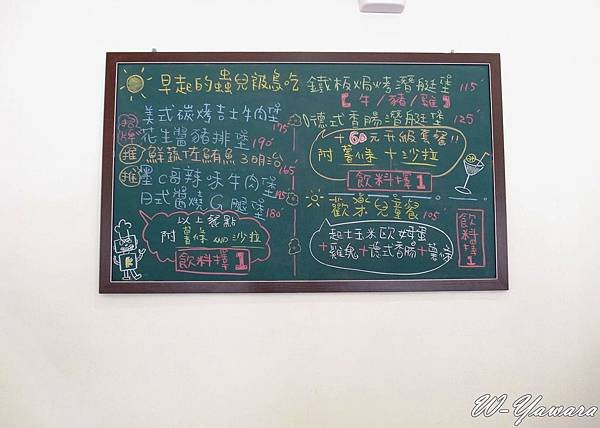 早起的蟲兒飯急吃
美式碳烤吉士牛肉堡 175
招牌 花生醬豬排堡 190
推 鮮蔬佐鮪魚3明治 165
推 墨C哥辣味牛肉堡 185
日式醬燒G腿堡 180
以上餐點
附 薯條 AND 沙拉
飲料擇1
鐵板焗烤潛艇堡 115
【牛/豬/雞】
德式香腸潛艇堡 125
+60元升級套餐!!
附 薯條 + 沙拉
飲料擇1
歡樂兒童餐 105
起士玉米歐姆蛋
+雞塊+德式香腸+薯條
飲料擇1
W-Yawara